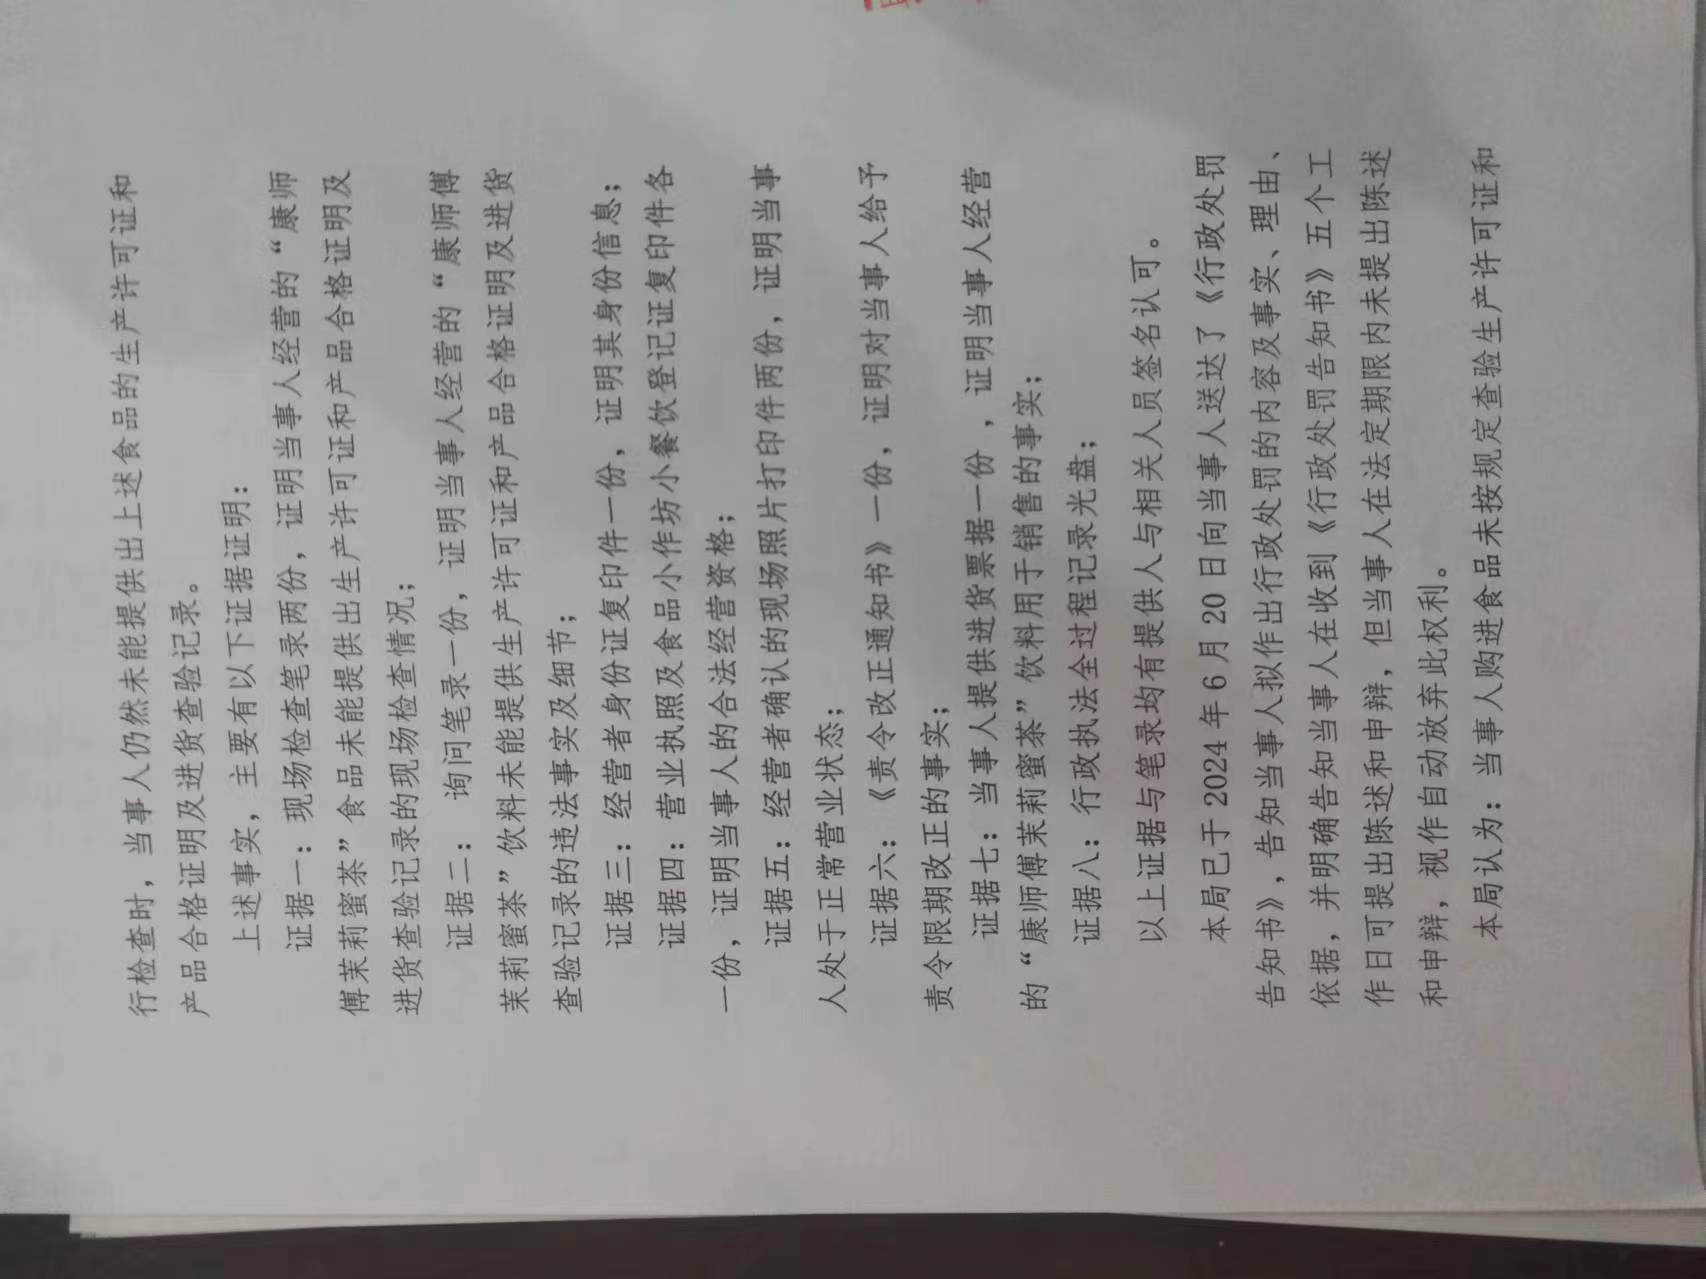 行检查时，当事人仍然未能提供出上述食品的生产许可证和
产品合格证明及进货查验记录。
上述事实，主要有以下证据证明：
证据一：现场检查笔录两份，证明当事人经营的“康师
傅茉莉蜜茶”食品未能提供出生产许可证和产品合格证明及
进货查验记录的现场检查情况；
证据二： 询问笔录一份，证明当事人经营的“康师傅
茉莉蜜茶”饮料未能提供生产许可证和产品合格证明及进货
查验记录的违法事实及细节；
证据三：经营者身份证复印件一份，证明其身份信息；
证据四：营业执照及食品小作坊小餐饮登记证复印件各
一份，证明当事人的合法经营资格；
证据五：经营者确认的现场照片打印件两份，证明当事
人处于正常营业状态；
证据六：《责令改正通知书》一份，证明对当事人给予
责令限期改正的事实；
证据七：当事人提供进货票据一份，证明当事人经营
的“康师傅茉莉蜜茶”饮料用于销售的事实；
证据八：行政执法全过程记录光盘；
以上证据与笔录均有提供人与相关人员签名认可。
本局已于 2024 年 6 月 20 日向当事人送达了《行政处罚
告知书》，告知当事人拟作出行政处罚的内容及事实、理由、
依据，并明确告知当事人在收到《行政处罚告知书》五个工
作日可提出陈述和申辩，但当事人在法定期限内未提出陈述
和申辩，视作自动放弃此权利。
本局认为：当事人购进食品未按规定查验生产许可证和